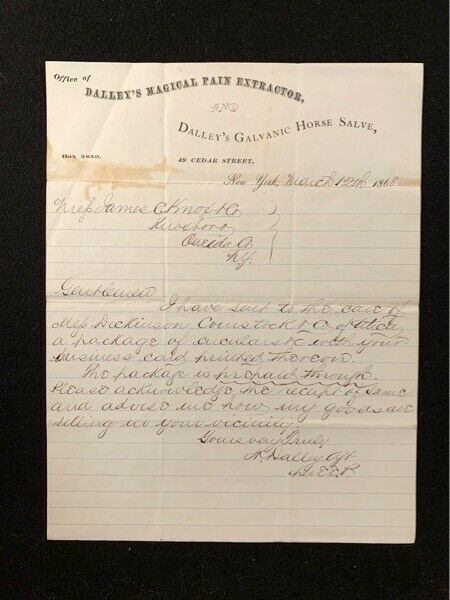 Office of
DALLEY'S MAGICAL PAIN EXTRACTOR,
AND
DALLEY'S GALVANIC HORSE SALVE,
BOX 4839. 49 CEDAR STREET.
New York, March 12th 1868
Messrs James C Knox & Co
Knoxboro
Oneida Co
N.Y.
Gentlemen
I have sent to the care of
Mess Dickinson, Comstock & Co of Utica
a package of circulars &c with your
business card printed thereon.
The package is prepaid through.
Please acknowledge the receipt of same
and advise me how my goods are
selling in your vicinity.
Yours very Truly
H. Dalley Agt